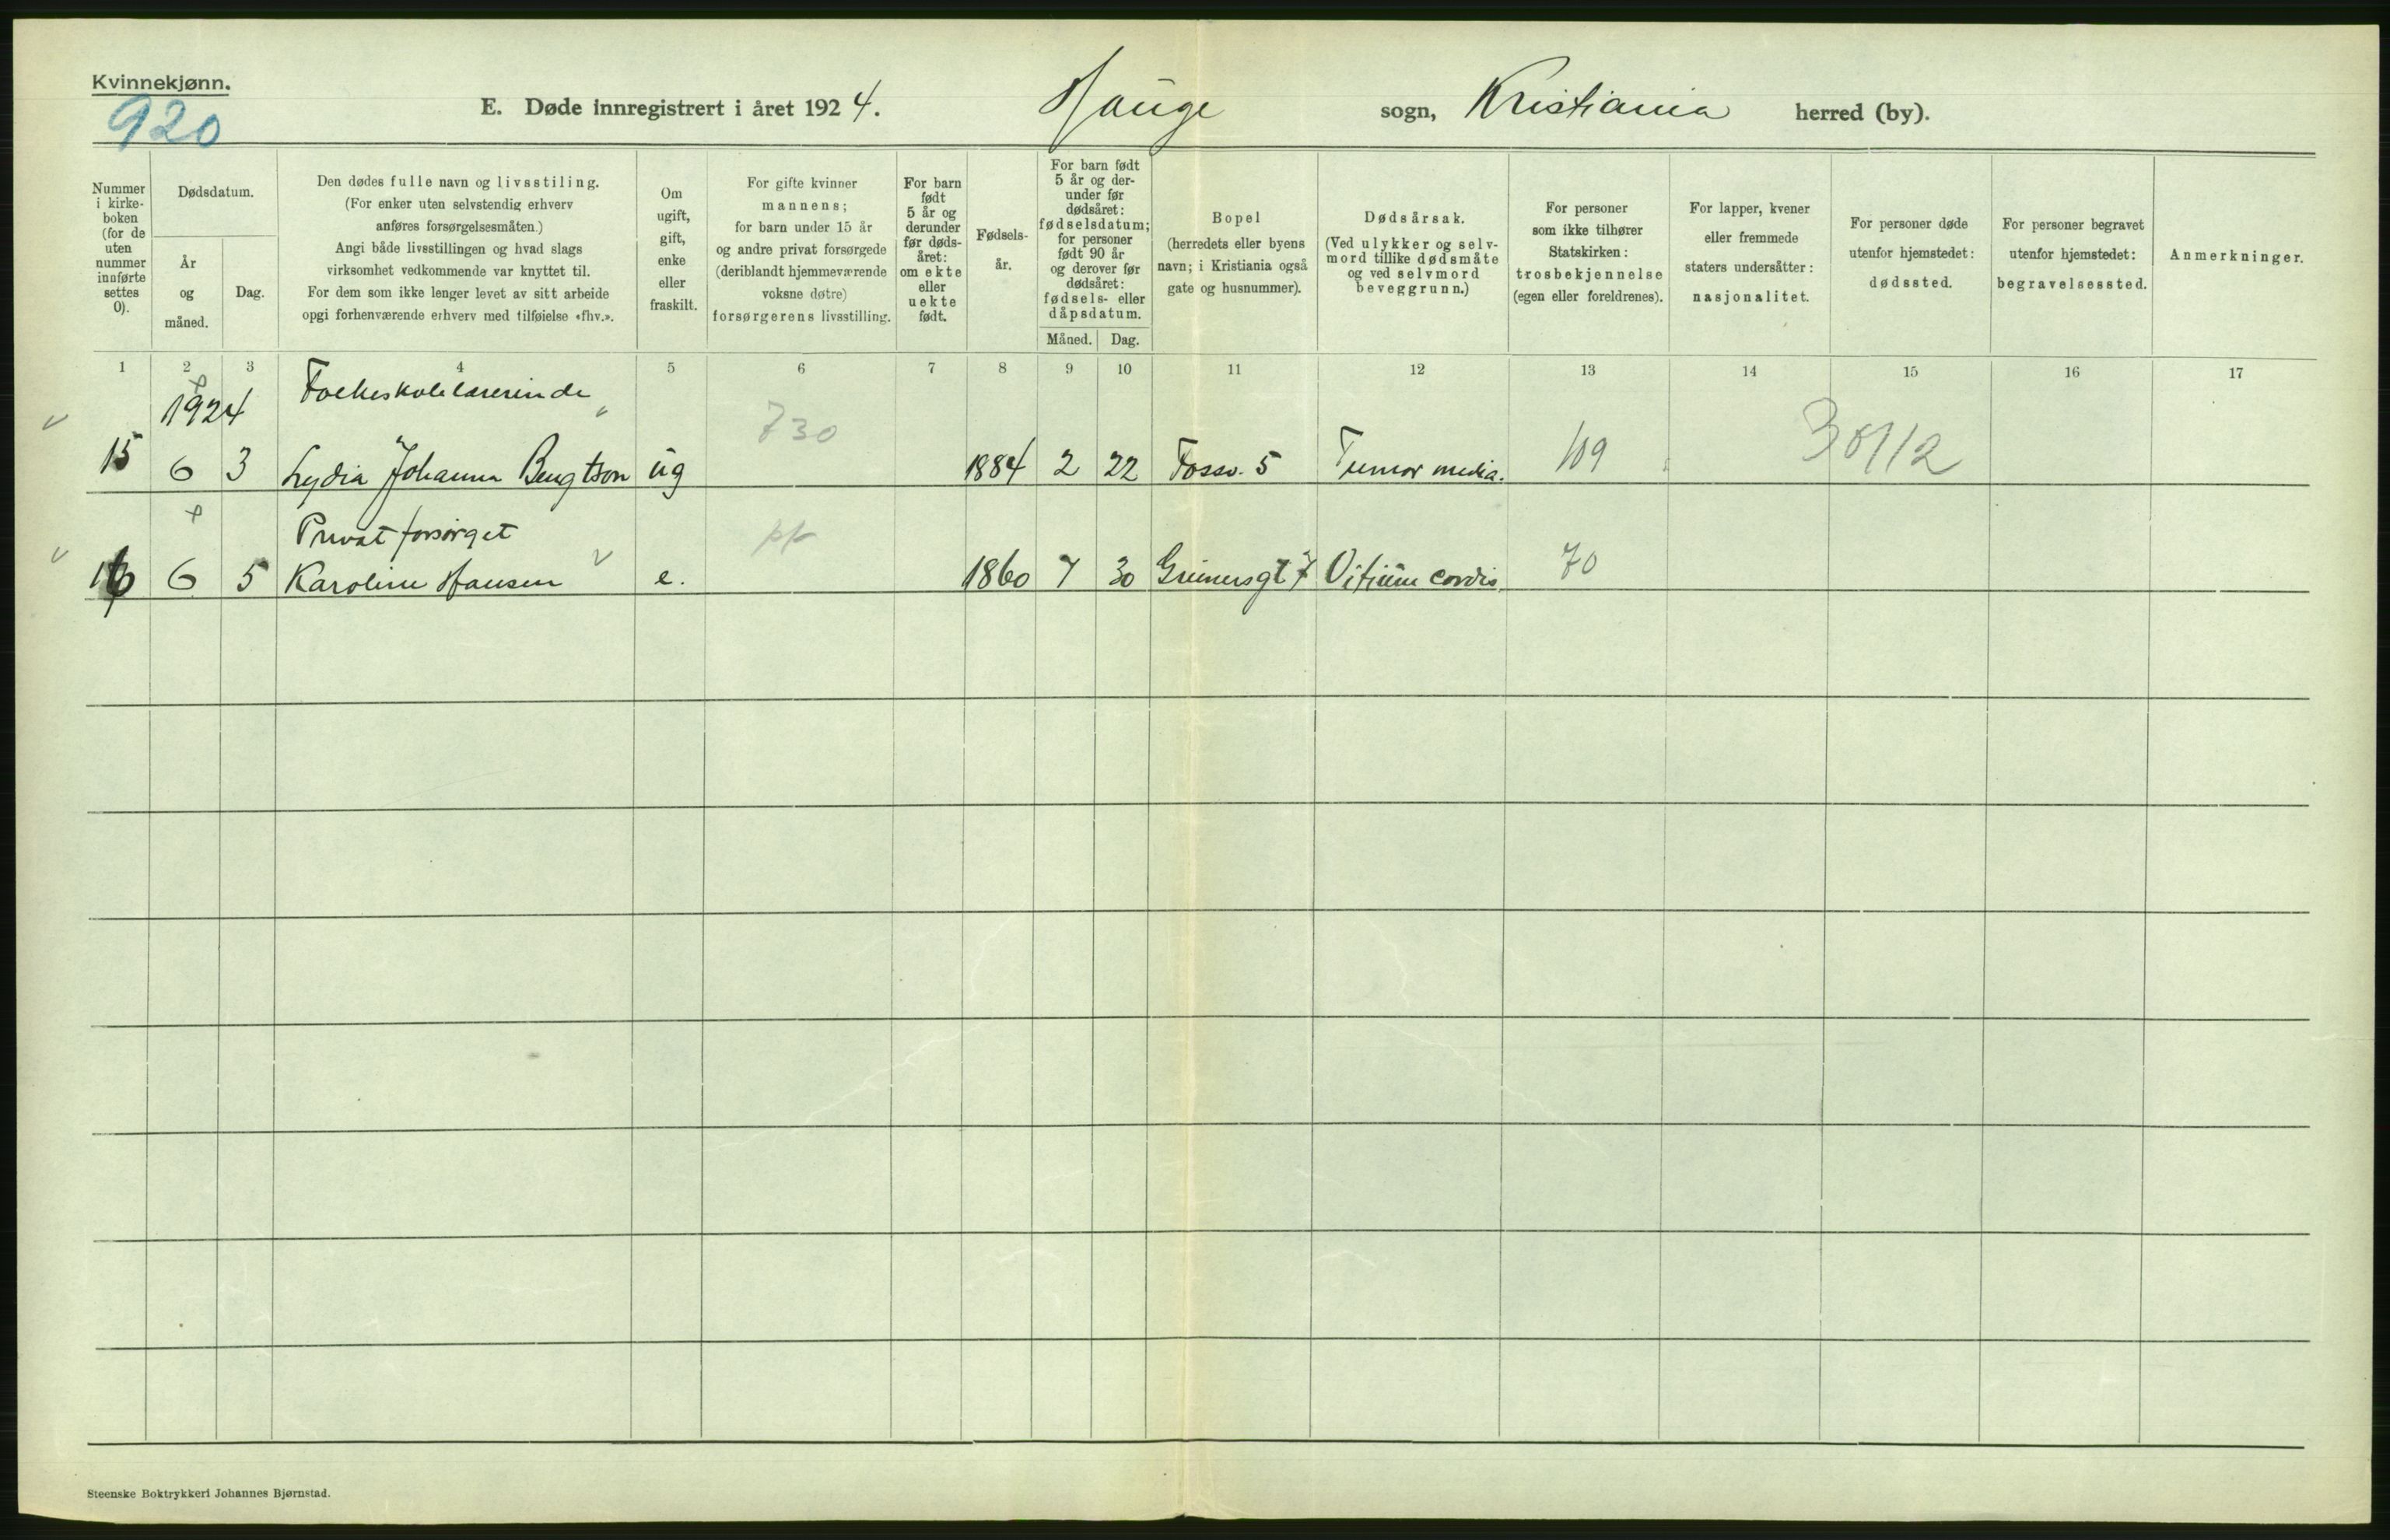 Kvinnekjønn.
920
E. Døde innregistrert i året 1924. Hauge sogn, Kristiania herred (by).
Nummer
i kirke-
boken
(for de
uten
nummer
innførte
settes
0).
Dødsdatum.
År
og
måned.
Dag.
Den dødes fulle navn og livsstiling.
(For enker uten selvstendig erhverv
anføres forsørgelsesmåten.)
Angi både livsstillingen og hvad slags
virksomhet vedkommende var knyttet til.
For dem som ikke lenger levet av sitt arbeide
opgi forhenværende erhverv med tilføielse «fhv.».
Om
ugift,
gift,
enke
eller
fraskilt.
For gifte kvinner
mannens;
for barn under 15 år
og andre privat forsørgede
(deriblandt hjemmeværende
voksne døtre)
forsørgerens livsstilling.
For barn
født
5 år og
derunder
før døds-
året:
om ekte
eller
uekte
født.
Fødsels-
år.
For barn født
5 år og der-
under før
dødsåret:
fødselsdatum;
for personer
født 90 år
og derover før
dødsåret:
fødsels- eller
dåpsdatum.
Måned. Dag.
Bopel
(herredets eller byens
navn; i Kristiania også
gate og husnummer).
Dødsårsak.
(Ved ulykker og selv-
mord tillike dødsmåte
og ved selvmord
beveggrunn.)
For personer
som ikke tilhører
Statskirken:
trosbekjennelse
(egen eller foreldrenes).
For lapper, kvener
eller fremmede
staters undersåtter:
nasjonalitet.
For personer døde
utenfor hjemstedet:
dødssted.
For personer begravet
utenfor hjemstedet:
begravelsessted.
Anmerkninger.
1 2 3 4 5 6 7 8 9 10 11 12 13 14 15 16 17
1924 Folkeskolelærerinde
730
15 6 3 Lydia Johanna Bengtson ug 1884 2 22 Fossv. 5 Tumor media. 109
Privat forsørget
pp
16 6 5 Karoline Hansen e. 1860 7 30 Grünersgt 7 Vitium cordis. 70
Steenske Boktrykkeri Johannes Bjørnstad.